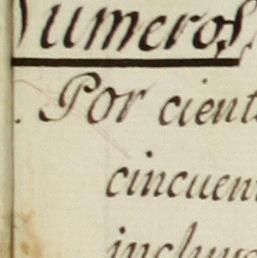 umeros,
. Por cient
cincuen
inclus